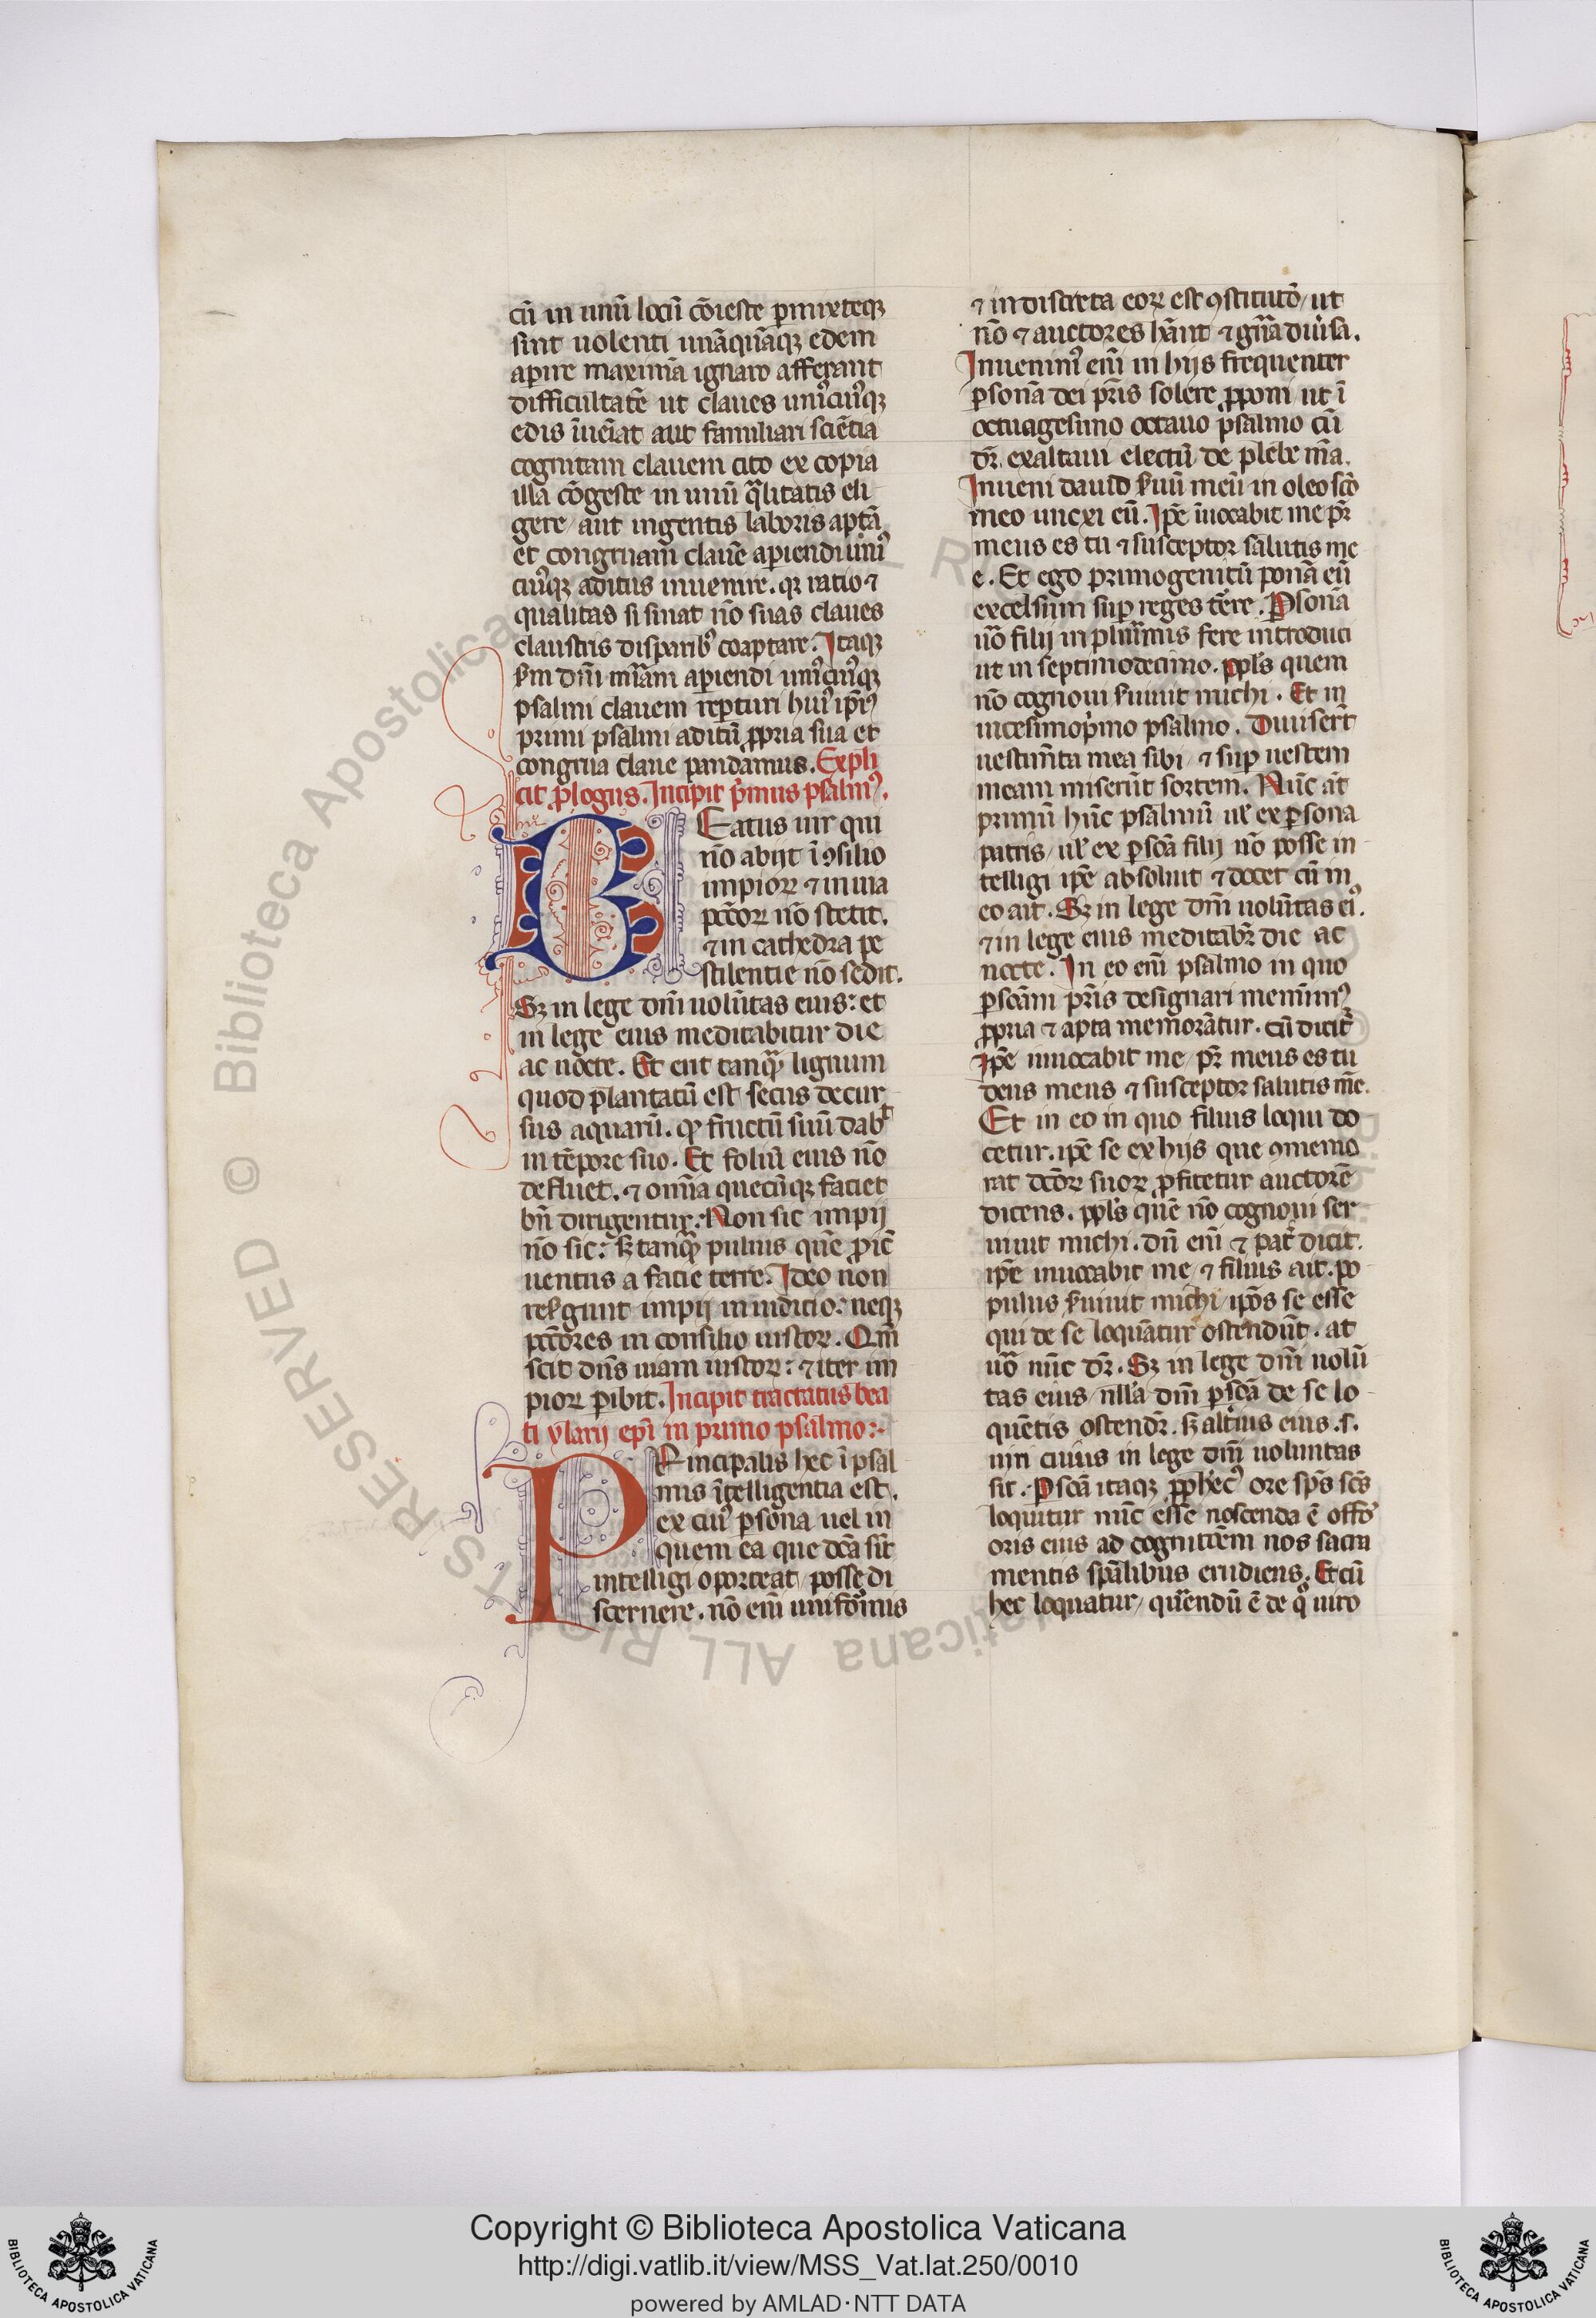 cū in unū locū cōieste ꝑmixteqꝫ
sint uolenti unāquāqꝫ edem
aꝑire maximā ignaro afferant
difficultatē ut claues unꝰcuiꝰqꝫ
edis īueīat aut familiari sciētia
cognitam clauem cito ex copia
illa cōgeste in unū qͣlitatis eli
gere / aut ingentis laboris aptā
et congruam clauē aꝑiendi uniꝰ
cuiꝰqꝫ aditus inuenire. qꝛ ratio ⁊
qualitas si sinat nō suas claues
claustris disparibꝰ coaptare. Itaqꝫ
ẜm dn̄i mīam aꝑiendi uniꝰcuiꝰqꝫ
psalmi clauem reꝑturi huiꝰ ip̄iꝰ
primi psalmi aditū ꝓpria sua et
congrua claue pandamus. Expli
cit ꝓlogus. Incipit pͥmus psalmꝰ.
BEatus uir qui
nō abijt ī ꝯsilio
impioꝝ ⁊ in uia
pc̄coꝝ nō stetit.
⁊ in cathedra pe
stilentie nō sedit.
Sꝫ in lege dn̄i uolūtas eius: et
in lege eius meditabitur die
ac nocte. Et erit tanqͣ lignum
quod plantatū est secus decur
sus aquarū. qꝰ fructū suū dabᵗ
in tēpore suo. Et foliū eius nō
defluet. ⁊ omīa quecūqꝫ faciet
bn̄ dirigentur. Non sic impij
nō sic: ẜ tanqͣ puluis quē ꝓicͭ
uentus a facie terre. Ideo non
resͬgunt impij in iudicio: neqꝫ
pc̄cores in consilio iustoꝝ. Qm̄
scit dn̄s uiam iustoꝝ: ⁊ iter im
pioꝝ ꝑibit. Incipit tractatus bea
ti ylarij ep̄i in primo psalmo:·
PRincipalis hec ī psal
mis ītelligentia est.
ex cuiꝰ ꝑsona uel in
quem ea que dc̄a sūt
intelligi oporteat / posse di
scernere. nō eī unifoꝛmis
⁊ indiscreta eoꝝ est ꝯstitutō / ut
nō ⁊ auctores hānt ⁊ gn̄a diuͥsa.
Inuenimꝰ eī in hijs frequenter
ꝑsonā dei pr̄is solere ꝓponi ut ī
octuagesimo octauo psalmo cū
dr̄. exaltaui electū de plebe m̄a.
Inueni dauid ẜuū meū in oleo sc̄o
meo unexi eū. Ip̄e īuocabit me pr̄
meus es tu ⁊ susceptor salutis me
e. Et ego primogenitū ponā eū
excelsum suꝑ reges tr̄re. Psonā
uͦ filij in plurīmis fere introduci
ut in septimodecimo. ppl̄s quem
nō cognoui ẜuiuit michi. Et in
uicesimopͥmo psalmo. Diuiserūt
uestimīta mea sibi / ⁊ suꝑ uestem
meam miserūt sortem. Nūc āt
primū hūc psalmū ul̄ ex ꝑsona
patris / ul̄ ex ꝑsōa filij nō posse in
telligi ip̄e absoluit ⁊ docet cū in
eo ait. Sꝫ in lege dn̄i uolūtas eiꝰ.
⁊ in lege eius meditabr̄ die ac
nocte. In eo eī psalmo in quo
ꝑsōam pr̄is designari meminimꝰ
ꝓpria ⁊ apta memorātur. cū dicitͬ
Ip̄e inuocabit me / pr̄ meus es tu
deus meus ⁊ susceptor salutis mē.
Et in eo in quo filius loqui do
cetur. ip̄e se ex hijs que ꝯmemo
rat dc̄oꝝ suoꝝ ꝓfitetur auctorē
dicens. ppl̄s quē nō cognoui ser
uiuit michi. dū eī ⁊ patͬ dicit.
ip̄e inuocabit me / ⁊ filius ait. po
pulus ẜuiuit michi / ip̄os se esse
qui de se loquātur ostendūt. at
uͦ nūc dr̄. Sꝫ in lege dn̄i uolū
tas eius / nll̄a dn̄i ꝑsōa de se lo
quētis ostendr̄. ẜ altͥius eius .s.
uiri cuius in lege dn̄i uoluntas
sit. Psōa itaqꝫ ꝓphec̄ꝰ ore sp̄s sc̄s
loquitur nūc esse noscenda ē offō
oris eius ad cognitōem nos sacra
mentis spūalibus erudiens. Et cū
hec loquatur / querendū ē de qͦ uiro
Copyright © Biblioteca Apostolica Vaticana
http://digi.vatlib.it/view/MSS_Vat.lat.250/0010
powered by AMLAD·NTT DATA
BIBLIOTECA APOSTOLICA VATICANA
BIBLIOTECA APOSTOLICA VATICANA